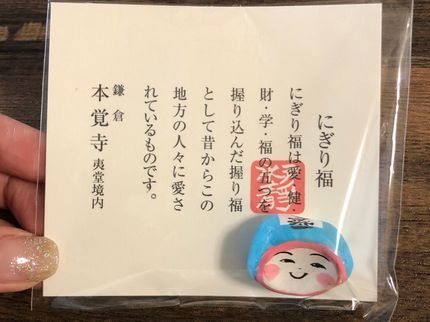 にぎり福
にぎり福は愛・健・
財・学・福の五つを
握り込んだ握り福
として昔からこの
地方の人々に愛さ
れているものです。
鎌倉
本覚寺 夷堂境内